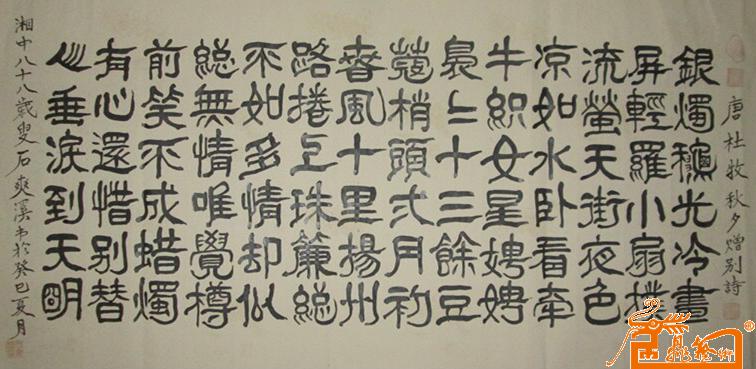 唐杜牧秋夕赠别詩
銀燭穐光冷畫
屏輕羅小扇撲
流螢天街夜色
凉如水卧看牽
牛織女星娉娉
裊〻十三餘豆
蔻梢頭弍月初
春風十里揚州
路捲上珠簾總
不如多情却似
總無情唯覺樽
前笑不成蜡燭
有心還惜别替
心垂淚到天明
湘中八十八歲叟石爽溪书於癸巳夏月